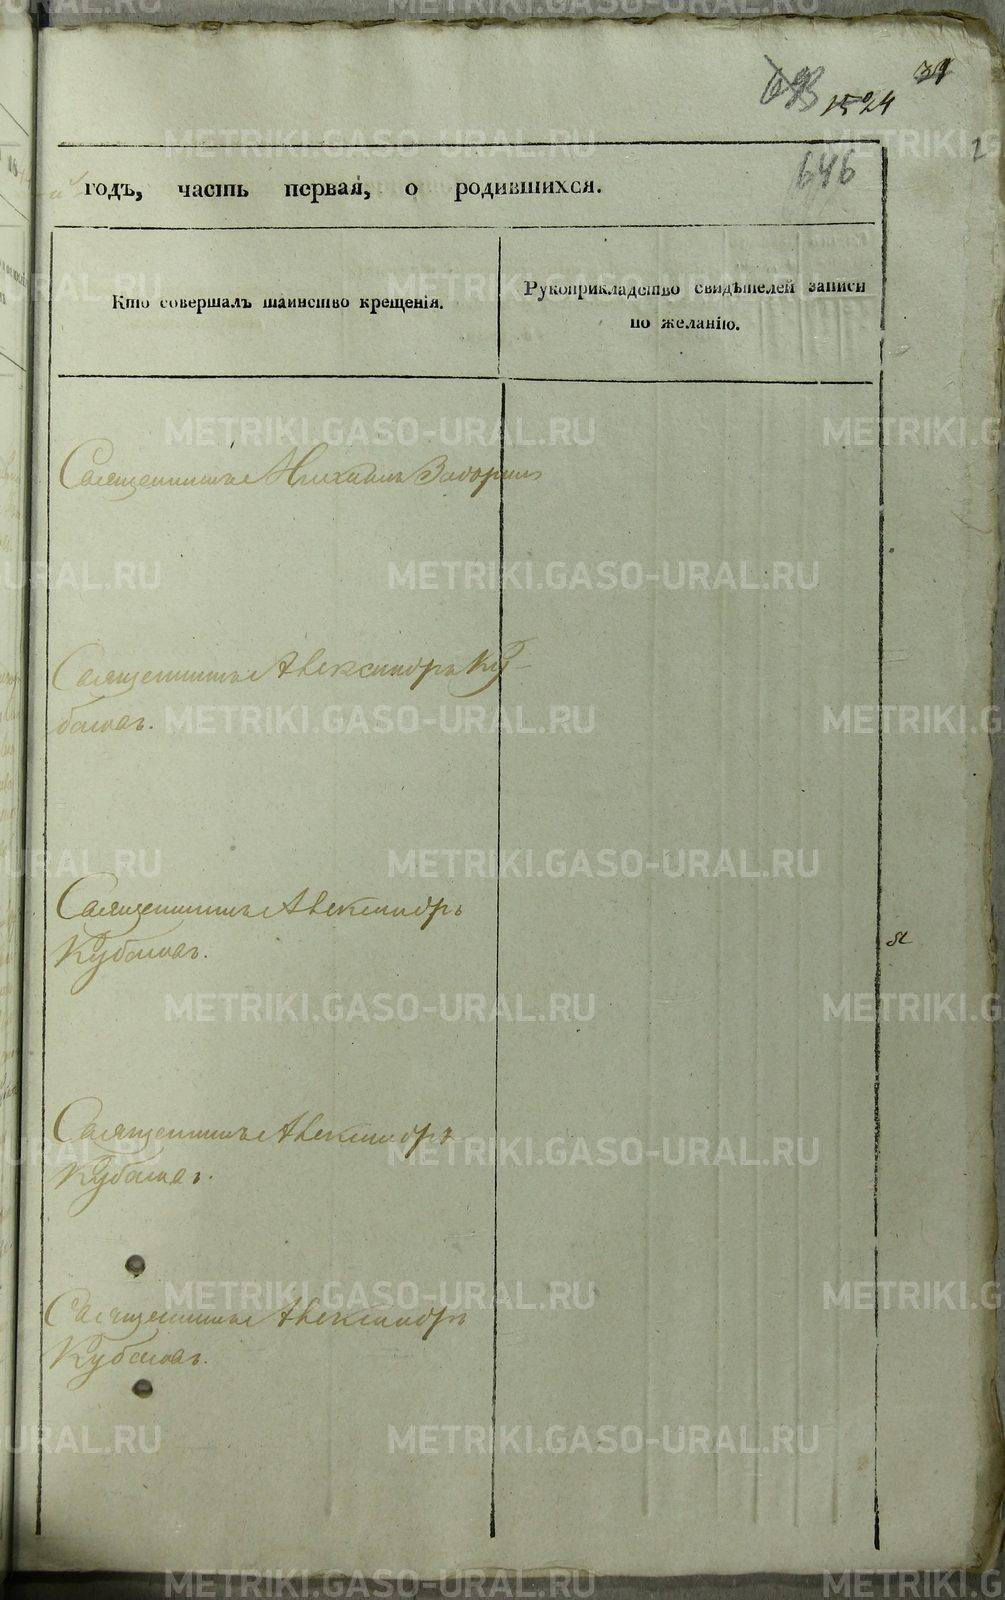 1524
646
годъ, часть первая, о родившихся.
Кто совершалъ таинство крещенія.
Рукоприкладство свидѣтелей записи
по желанію.
Священникъ Михаилъ
Священникъ Александръ Ку-
басовъ.
Священникъ Александръ
Кубасовъ.
Священникъ Александръ
Кубасовъ.
Священникъ Александръ
Кубасовъ.
METRIKI.GASO-URAL.RU